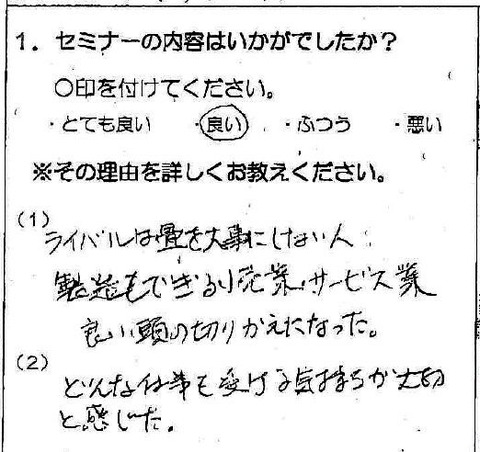 1. セミナーの内容はいかがでしたか？
○印を付けてください。
・とても良い ・良い ・ふつう ・悪い
※その理由を詳しくお教えください。
(1)
ライバルは畳を大事にしない人
製造もできる小売業・サービス業
良い頭の切りかえになった。
(2)
どんな仕事も受ける気持ちが大切
と感じた。